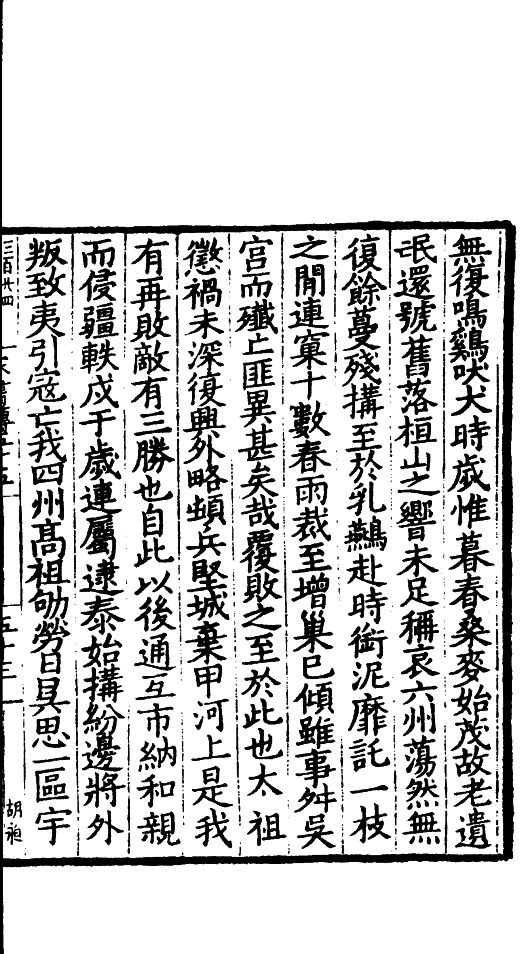 無復鳴鷄吠犬時歳惟暮春桑麥始茂故老遺
氓還號舊落桓山之響未足稱哀六州蕩然無
復餘蔓殘搆至於乳鷰赴時銜泥靡託一枝
之間連窠十數春雨裁至增巢已傾雖事舛吳
宫而殲亡匪異甚矣哉覆敗之至於此也太祖
懲禍未深復興外略頓兵堅城棄甲河上是我
有再敗敵有三勝也自此以後通互市納和親
而侵疆軼戍于歳連屬逮泰始搆紛邊將外
叛致夷引寇亡我四州髙祖劬勞日昃思一區宇
三百廿四
五十三
胡昶